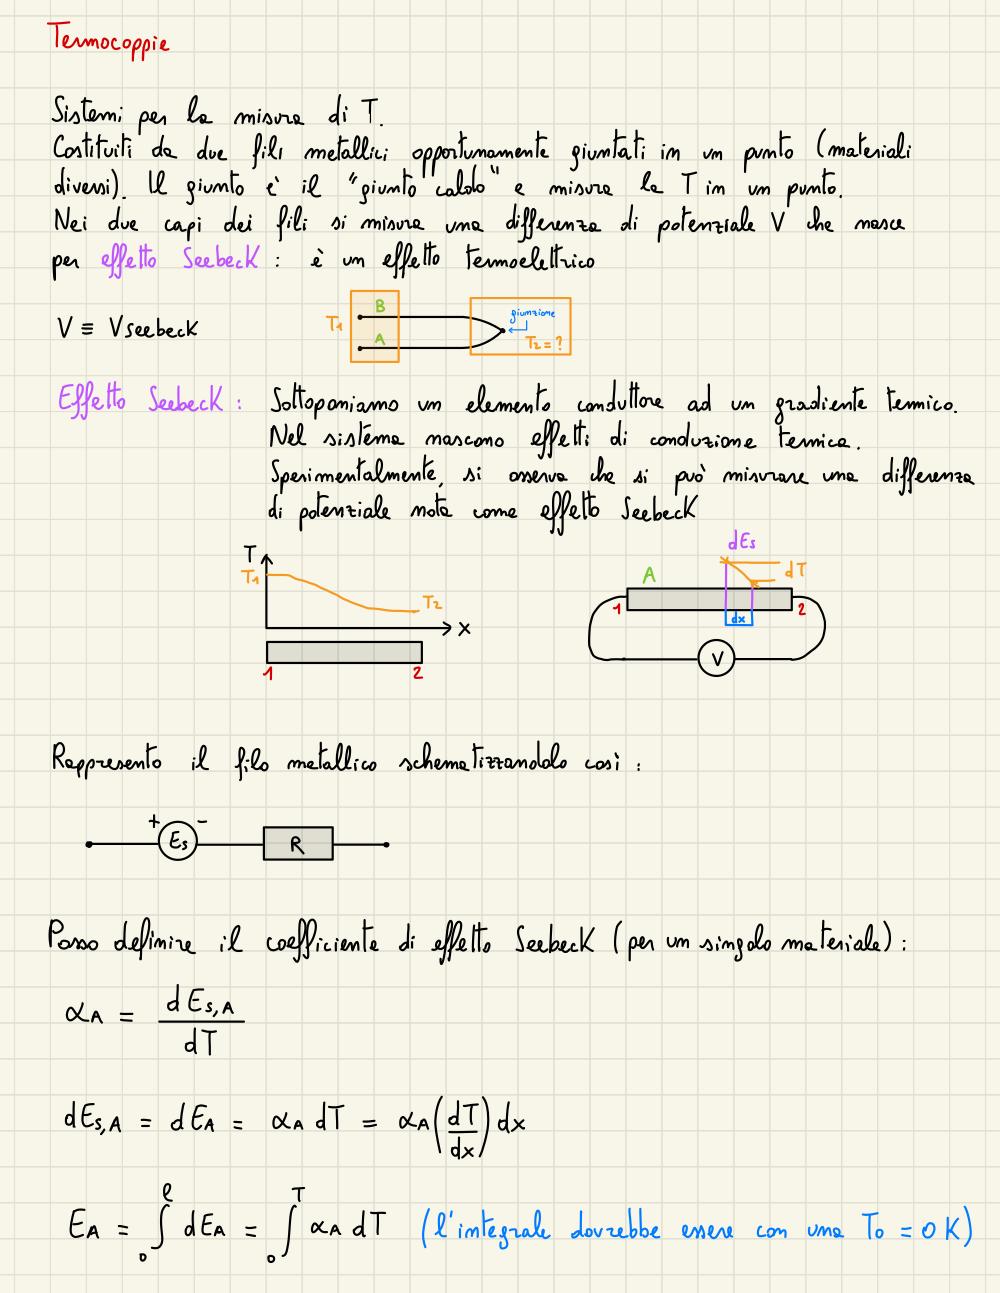 Termocoppie
Sistemi per la misura di T.
Costituiti da due fili metallici opportunamente giuntati in un punto (materiali
diversi). Il giunto è il "giunto caldo" e misura la T in un punto.
Nei due capi dei fili si misura una differenza di potenziale V che nasce
per effetto Seebeck : è un effetto termoelettrico
V ≡ Vseebeck
T₁
B
A
giunzione
T₂ = ?
Effetto Seebeck : Sottoponiamo un elemento conduttore ad un gradiente termico.
Nel sistema nascono effetti di conduzione termica.
Sperimentalmente, si osserva che si può misurare una differenza
di potenziale nota come effetto Seebeck
T
T₁
T₂
x
1 2
dEs
A
dT
1 dx 2
V
Rappresento il filo metallico schematizzandolo così :
+ Es - R
Posso definire il coefficiente di effetto Seebeck (per un singolo materiale) :
αA = dEs,A / dT
dEs,A = dEA = αA dT = αA (dT/dx) dx
EA = ∫₀ˡ dEA = ∫₀ᵀ αA dT (l'integrale dovrebbe essere con una T₀ = 0 K)